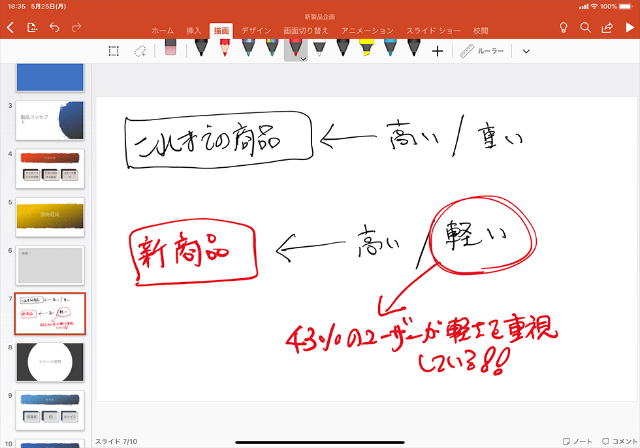 18:35 5月25日(月)
100%
新製品企画
ホーム 挿入 描画 デザイン 画面切り替え アニメーション スライド ショー 校閲
ルーラー
3
製品コンセプト
4
5
6
7
8
9
10
これまでの商品 ← 高い / 重い
新商品 ← 高い / 軽い
43%のユーザーが軽さを重視
している!!
スライド 7/10
ノート コメント